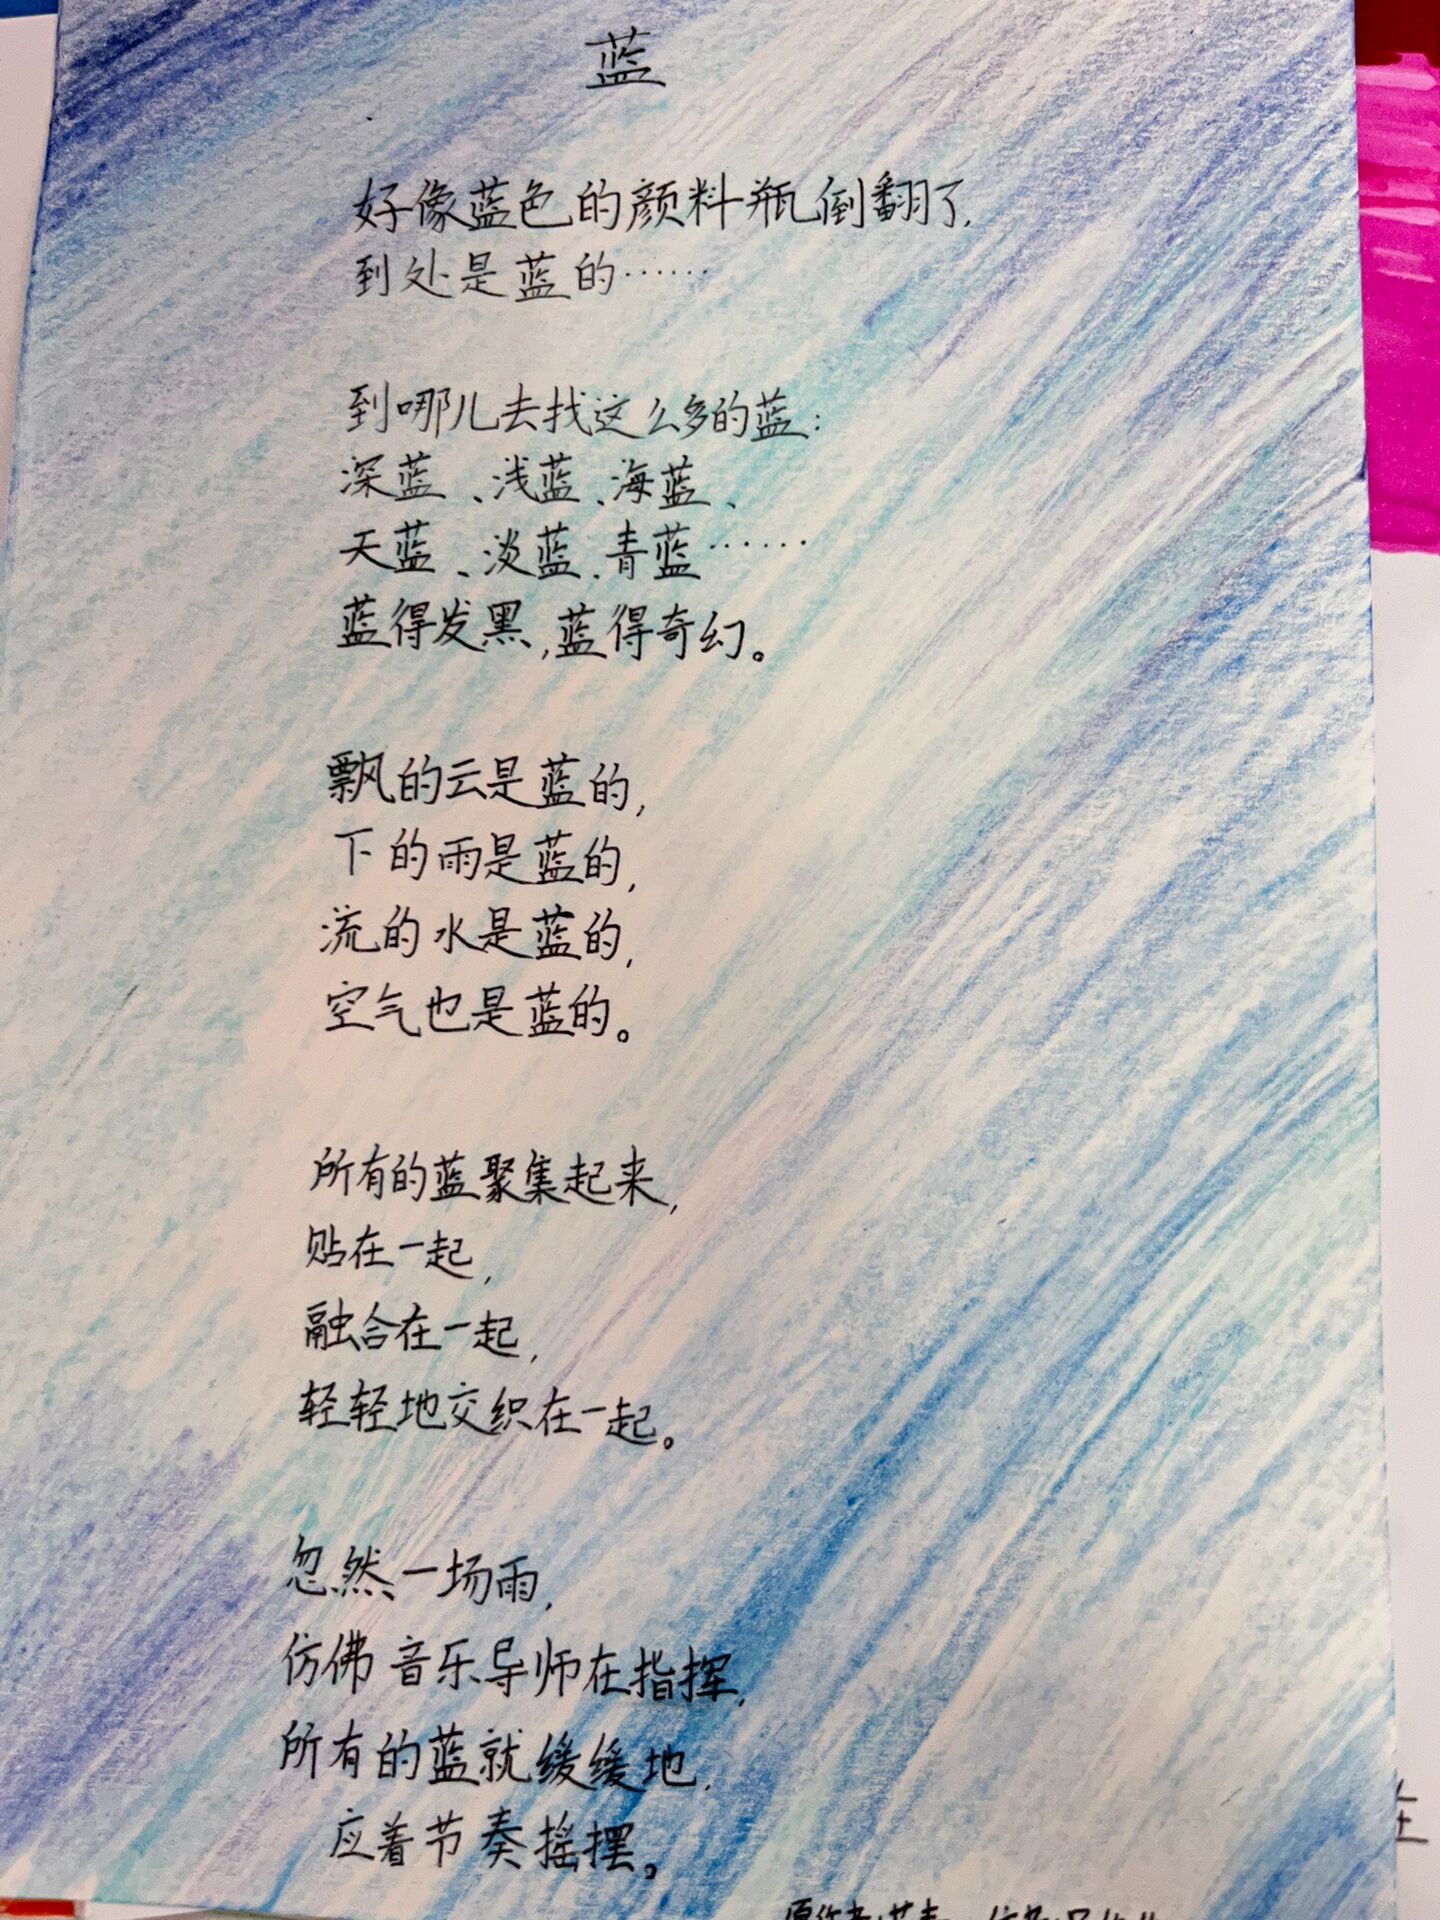 蓝
好像蓝色的颜料瓶倒翻了,
到处是蓝的……
到哪儿去找这么多的蓝:
深蓝、浅蓝、海蓝、
天蓝、淡蓝、青蓝……
蓝得发黑,蓝得奇幻。
飘的云是蓝的,
下的雨是蓝的,
流的水是蓝的,
空气也是蓝的。
所有的蓝聚集起来,
贴在一起,
融合在一起,
轻轻地交织在一起。
忽然一场雨,
仿佛音乐导师在指挥,
所有的蓝就缓缓地,
应着节奏摇摆。
原作者:艾青